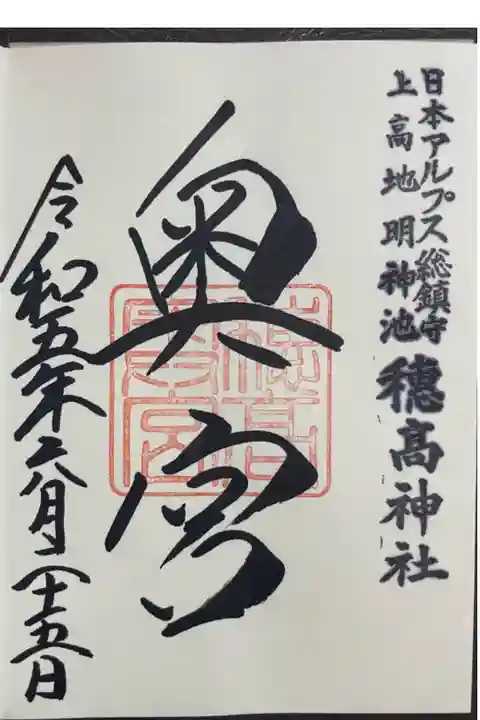 日本アルプス総鎮守
上高地明神池
穂高神社
奥宮
穂高
奥宮
令和五年六月二十五日